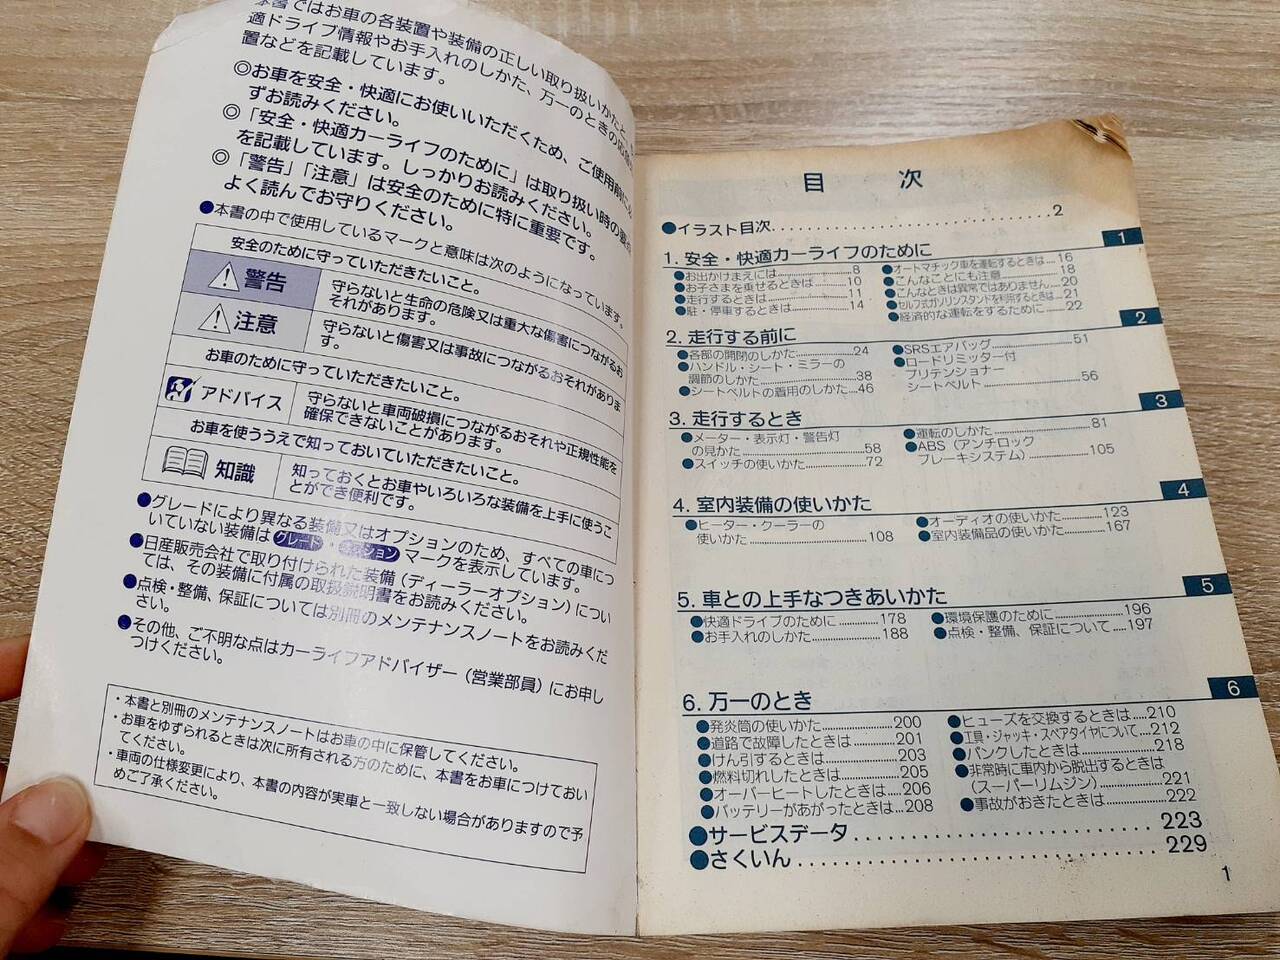 本書ではお車の各装置や装備の正しい取り扱いかたと、
適ドライブ情報やお手入れのしかた、万一のときの応
置などを記載しています。
◎お車を安全・快適にお使いいただくため、ご使用前に
ずお読みください。
◎「安全・快適カーライフのために」は取り扱い時の
を記載しています。しっかりお読みください。
◎「警告」「注意」は安全のために特に重要です。
よく読んでお守りください。
●本書の中で使用しているマークと意味は次のようになっています。
安全のために守っていただきたいこと。
警告
守らないと生命の危険又は重大な傷害につながるお
それがあります。
注意
守らないと傷害又は事故につながるおそれがありま
す。
お車のために守っていただきたいこと。
アドバイス
守らないと車両破損につながるおそれや正規性能を
確保できないことがあります。
お車を使ううえで知っておいていただきたいこと。
知識
知っておくとお車やいろいろな装備を上手に使うこ
とができ便利です。
●グレードにより異なる装備又はオプションのため、すべての車につ
いていない装備は グレード ・ オプション マークを表示しています。
●日産販売会社で取り付けられた装備（ディーラーオプション）につい
ては、その装備に付属の取扱説明書をお読みください。
●点検・整備、保証については別冊のメンテナンスノートをお読みくだ
さい。
●その他、ご不明な点はカーライフアドバイザー（営業部員）にお申し
つけください。
・本書と別冊のメンテナンスノートはお車の中に保管してください。
・お車をゆずられるときは次に所有される方のために、本書をお車につけておい
てください。
・車両の仕様変更により、本書の内容が実車と一致しない場合がありますので予
めご了承ください。
目 次
●イラスト目次............................2
1
1. 安全・快適カーライフのために
●お出かけまえには..............8
●お子さまを乗せるときは......10
●走行するときは................11
●駐・停車するときは...........14
●オートマチック車を運転するときは...16
●こんなことにも注意...........18
●こんなときは異常ではありません...20
●セルフ式ガソリンスタンドを利用するときは...21
●経済的な運転をするために....22
2
2. 走行する前に
●各部の開閉のしかた...........24
●ハンドル・シート・ミラーの
調節のしかた..................38
●シートベルトの着用のしかた...46
●SRSエアバッグ................51
●ロードリミッター付
プリテンショナー
シートベルト..................56
3
3. 走行するとき
●メーター・表示灯・警告灯
の見かた......................58
●スイッチの使いかた...........72
●運転のしかた..................81
●ABS（アンチロック
ブレーキシステム）............105
4
4. 室内装備の使いかた
●ヒーター・クーラーの
使いかた......................108
●オーディオの使いかた.........123
●室内装備品の使いかた.........167
5
5. 車との上手なつきあいかた
●快適ドライブのために.........178
●お手入れのしかた.............188
●環境保護のために.............196
●点検・整備、保証について.....197
6
6. 万一のとき
●発炎筒の使いかた.............200
●道路で故障したときは.........201
●けん引するときは.............203
●燃料切れしたときは...........205
●オーバーヒートしたときは.....206
●バッテリーがあがったときは...208
●ヒューズを交換するときは.....210
●工具・ジャッキ・スペアタイヤについて...212
●パンクしたときは.............218
●非常時に車内から脱出するときは
（スーパーリムジン）..........221
●事故がおきたときは...........222
●サービスデータ............................223
●さくいん..................................229
1